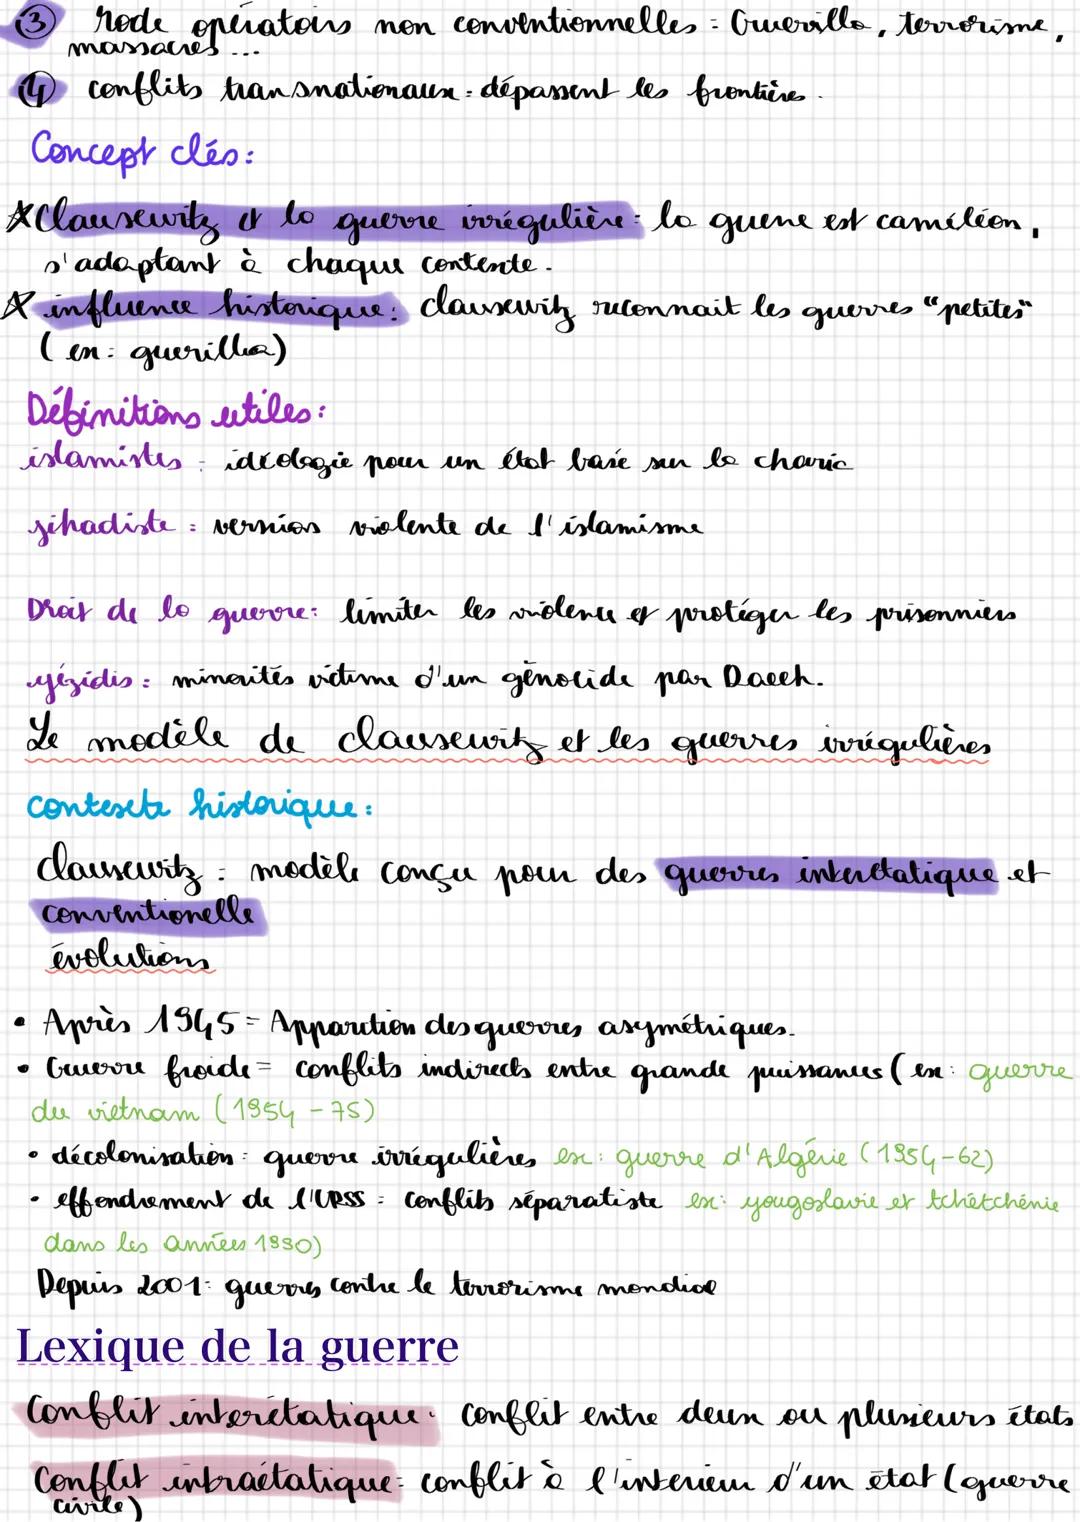 ③ Mode opératoirs non conventionnelles = Guerilla, terrorisme,
massacres ...
④ conflits transnationaux = dépassent les frontières.
Concept clés:
* Clausewitz et la guerre irrégulière: la guerre est caméléon,
s'adaptant à chaque contexte.
* influence historique: clausewitz reconnait les guerres "petites"
(ex: guerilla)
Définitions utiles:
islamistes = idéologie pour un état basé sur la charia
jihadiste: version violente de l'islamisme
Droit de la guerre: limiter les violence et protéger les prisonniers
yézidis: minorités victime d'un génocide par Daech.
Le modèle de clausewitz et les guerres irrégulières
contexte historique:
Clausewitz: modèle conçu pour des guerres interétatique et
conventionelle
évolutions
• Après 1945 = Apparition des guerres asymétriques.
• Guerre froide = conflits indirects entre grande puissances (ex: guerre
du vietnam (1954 - 75)
• décolonisation: guerre irrégulières ex: guerre d'Algérie (1954-62)
• effondrement de l'URSS = conflits séparatiste ex: yougoslavie et tchétchénie
dans les années 1990)
Depuis 2001: guerres contre le terrorisme mondial
Lexique de la guerre
Conflit interétatique: conflit entre deux ou plusieurs états
Conflit intraétatique: conflit à l'interieur d'un état (guerre
civile)